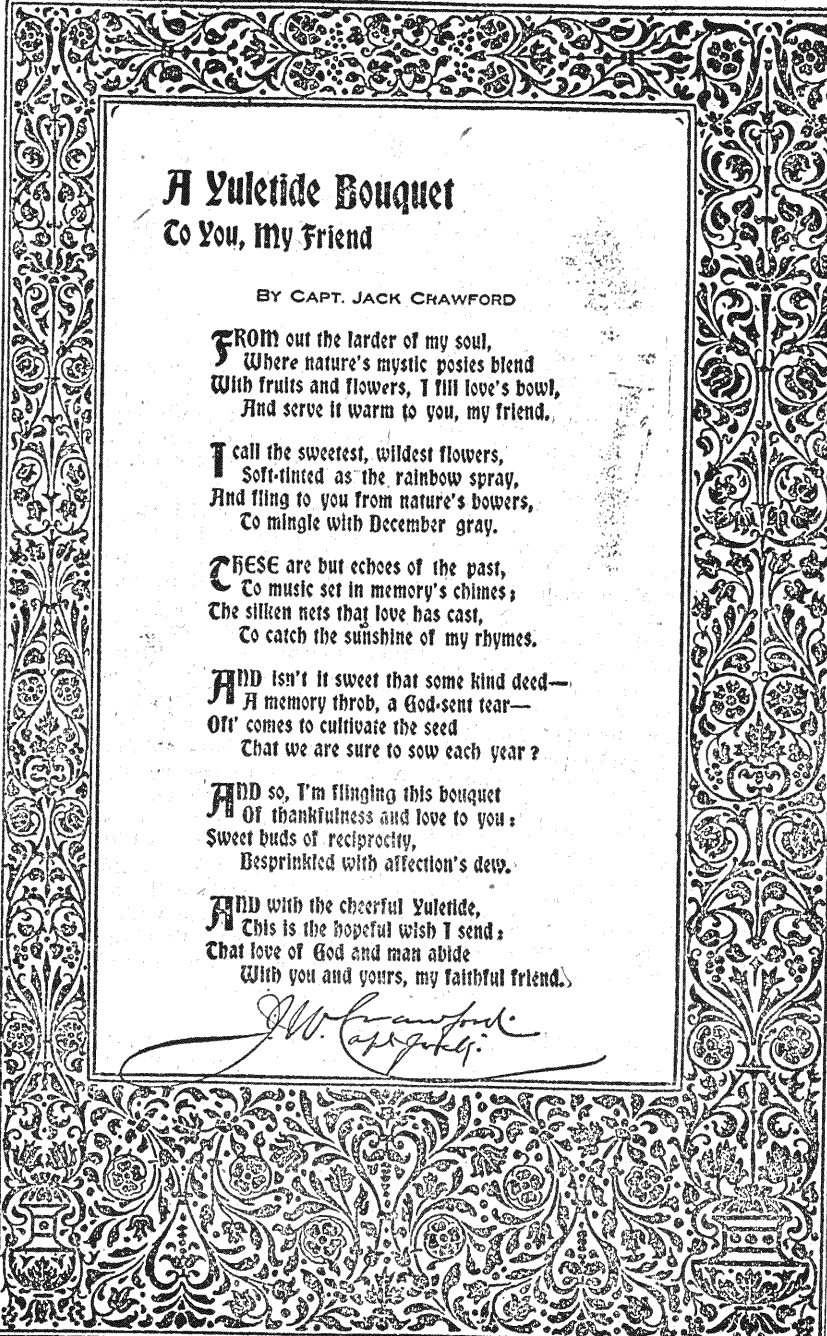 A Yuletide Bouquet
To You, My Friend
BY CAPT. JACK CRAWFORD
FROM out the larder of my soul,
Where nature's mystic posies blend
With fruits and flowers, I fill love's bowl,
And serve it warm to you, my friend.
I call the sweetest, wildest flowers,
Soft-tinted as the rainbow spray,
And fling to you from nature's bowers,
To mingle with December gray.
THESE are but echoes of the past,
To music set in memory's chimes;
The silken nets that love has cast,
To catch the sunshine of my rhymes.
AND isn't it sweet that some kind deed—
A memory throb, a God-sent tear—
Oft' comes to cultivate the seed
That we are sure to sow each year?
AND so, I'm flinging this bouquet
Of thankfulness and love to you:
Sweet buds of reciprocity,
Besprinkled with affection's dew.
AND with the cheerful Yuletide,
This is the hopeful wish I send:
That love of God and man abide
With you and yours, my faithful friend.
J.W. Crawford.
Capt Jack.